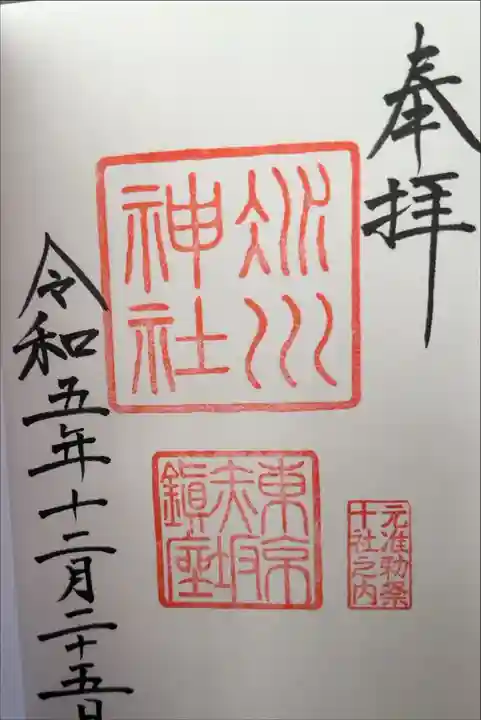 奉拝
氷川
神社
東京
赤坂
鎮座
元准勅祭
十社之内
令和五年十二月二十五日